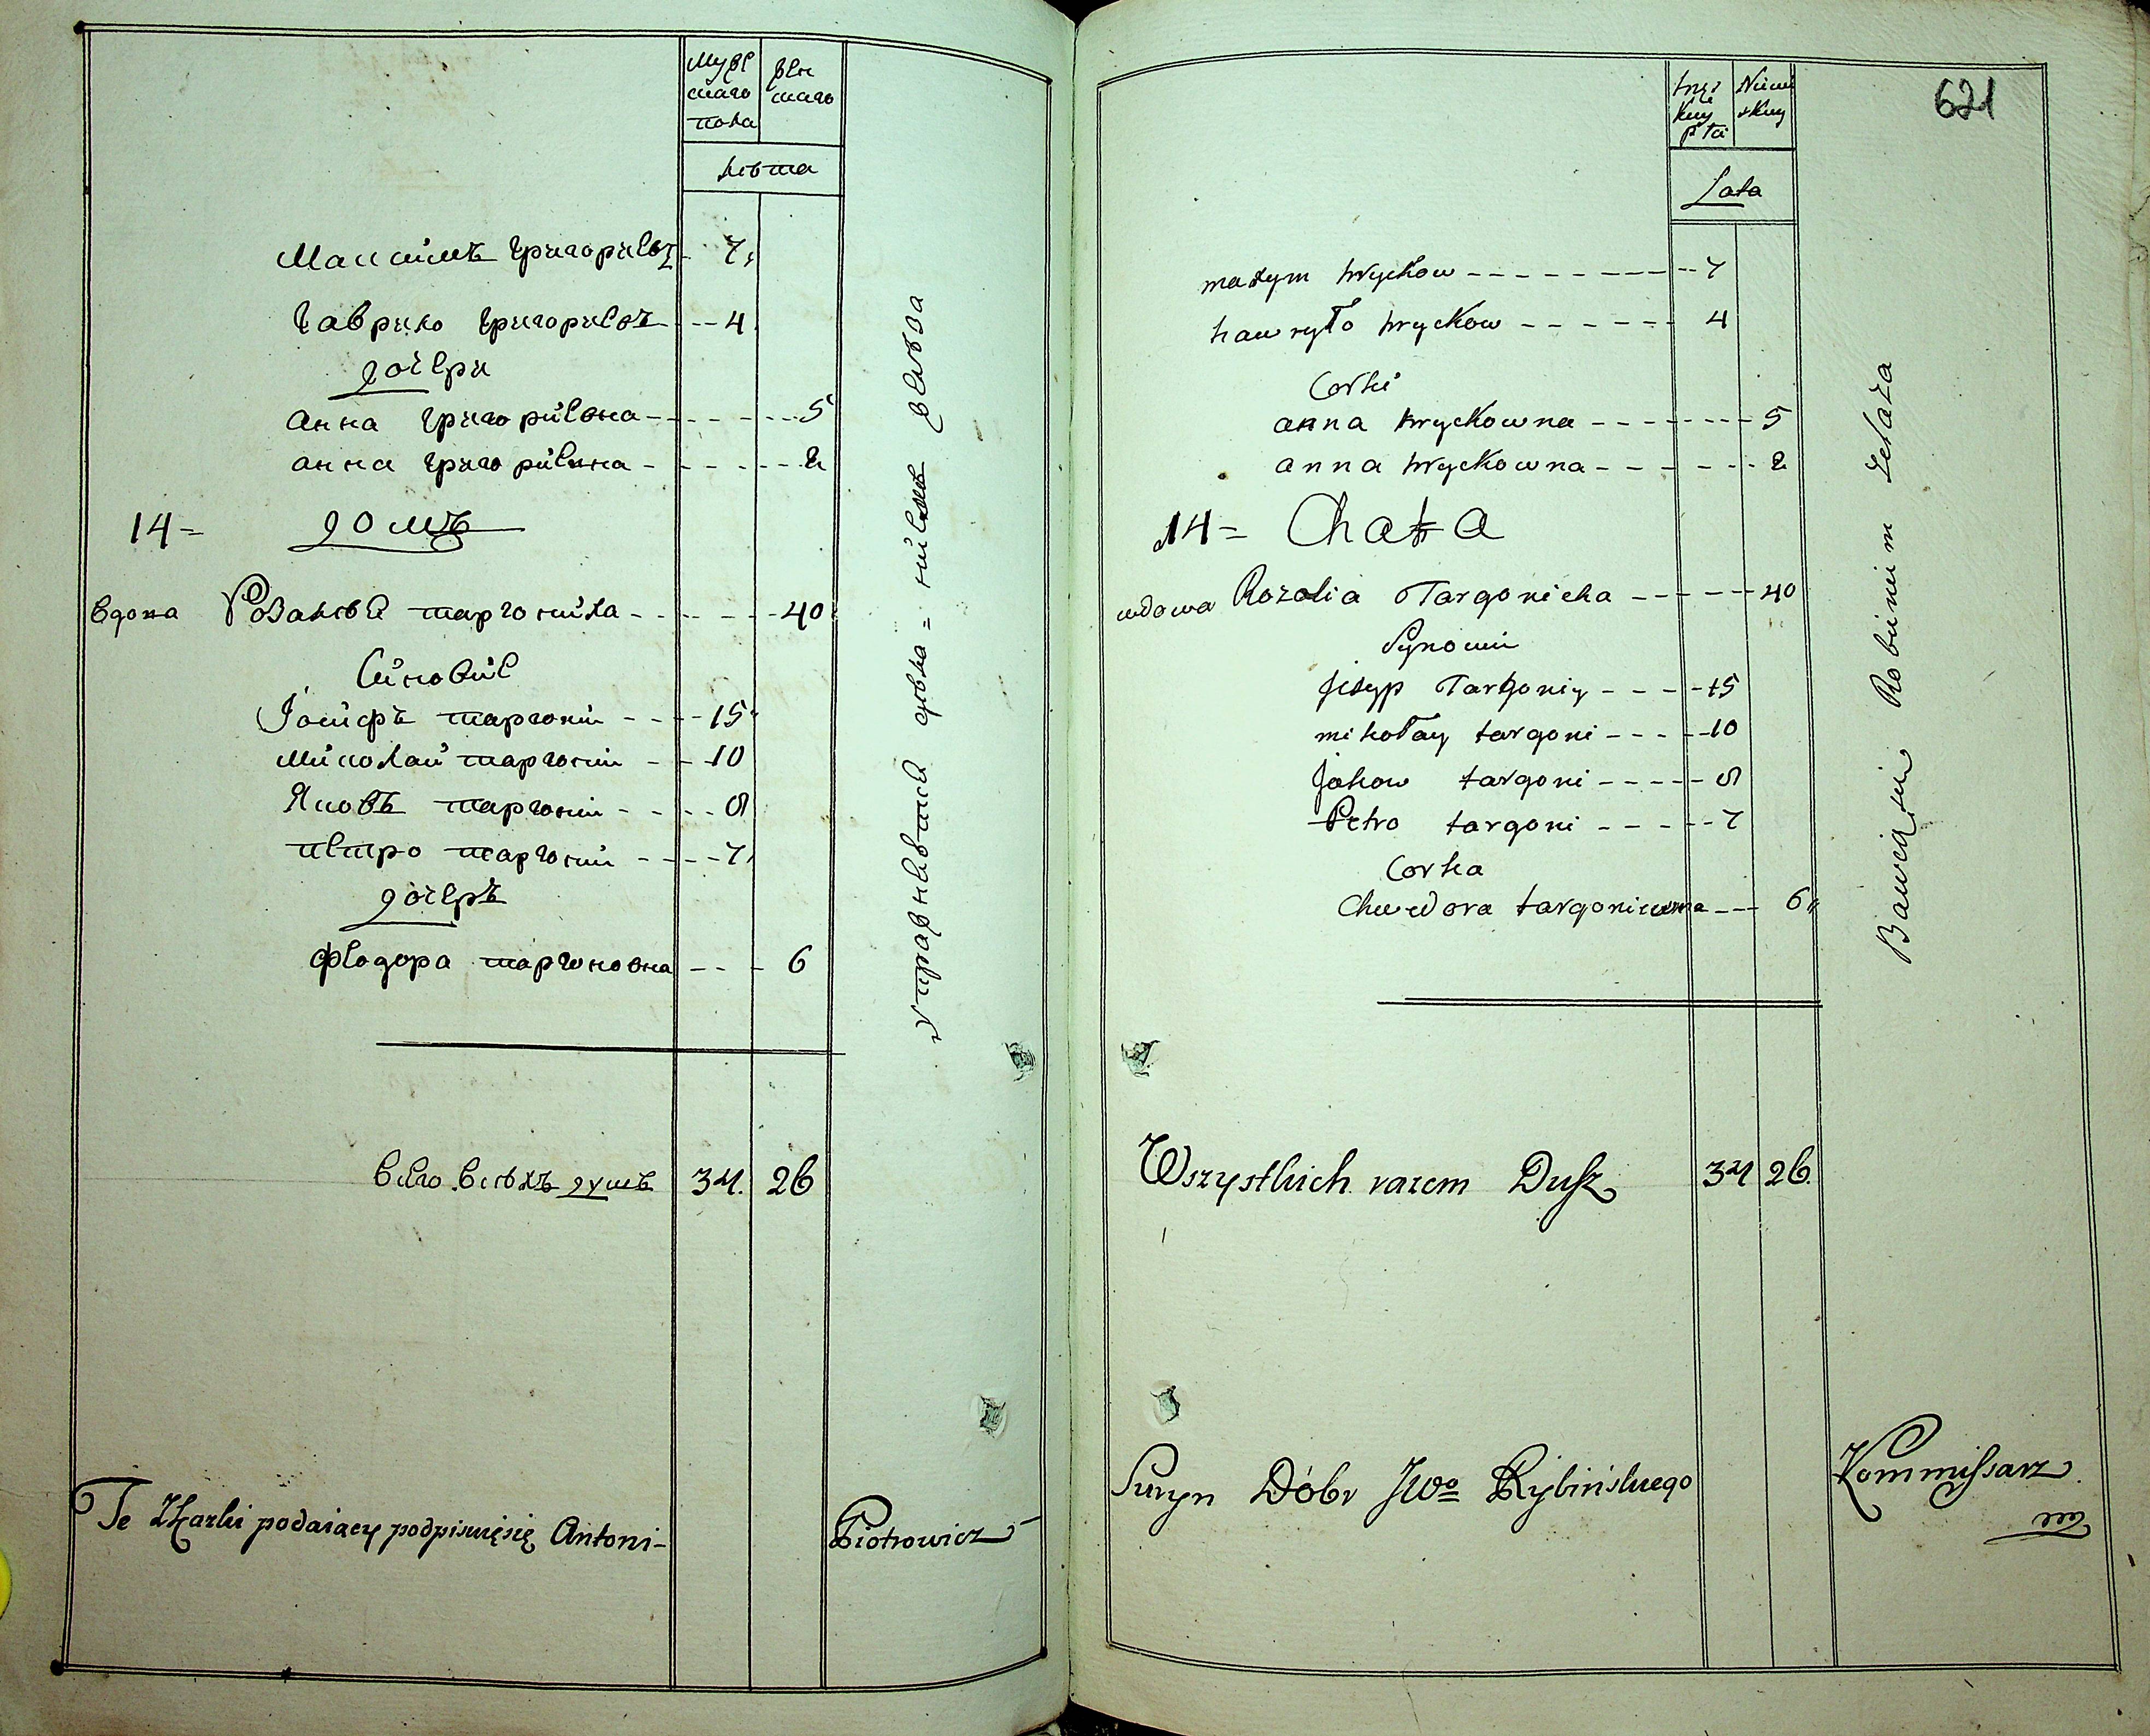 Мужескаго пола
Женскаго
лѣта
Максимъ григориевъ 7
Гаврило григориевъ 4
дочери
анна григориевна 5
анна григориевна 2
14 = домъ
вдова Розалія таргониха 40
Синовіе
Іосифъ таргоній 15
Миколай таргоній 10
Яковъ таргоній 9
петро таргоній 7
дочеръ
Феодора таргоновна 6
упражнаваются
всего всѣхъ душъ 34. 26
Te Skazki podaiący podpisuięsię Antoni-
Piotrowicz
621
Lata
maxym hryckow 7
hawryło hryckow 4
Corki
anna hryckowna 5
anna hryckowna 2
14 = Chata
wdowa Rozalia Targonicha 40
Synowie
Jozyp Targoniy 15
mikołay targoni 10
Jakow targoni 9
Petro targoni 7
Corka
Chwedora targoniowna 6
Bawią się Robieniem zelaza
Wszystkich razem Dusz 34 26.
Suryn Dóbr JWo Rybińskiego
Kommissarz
mp